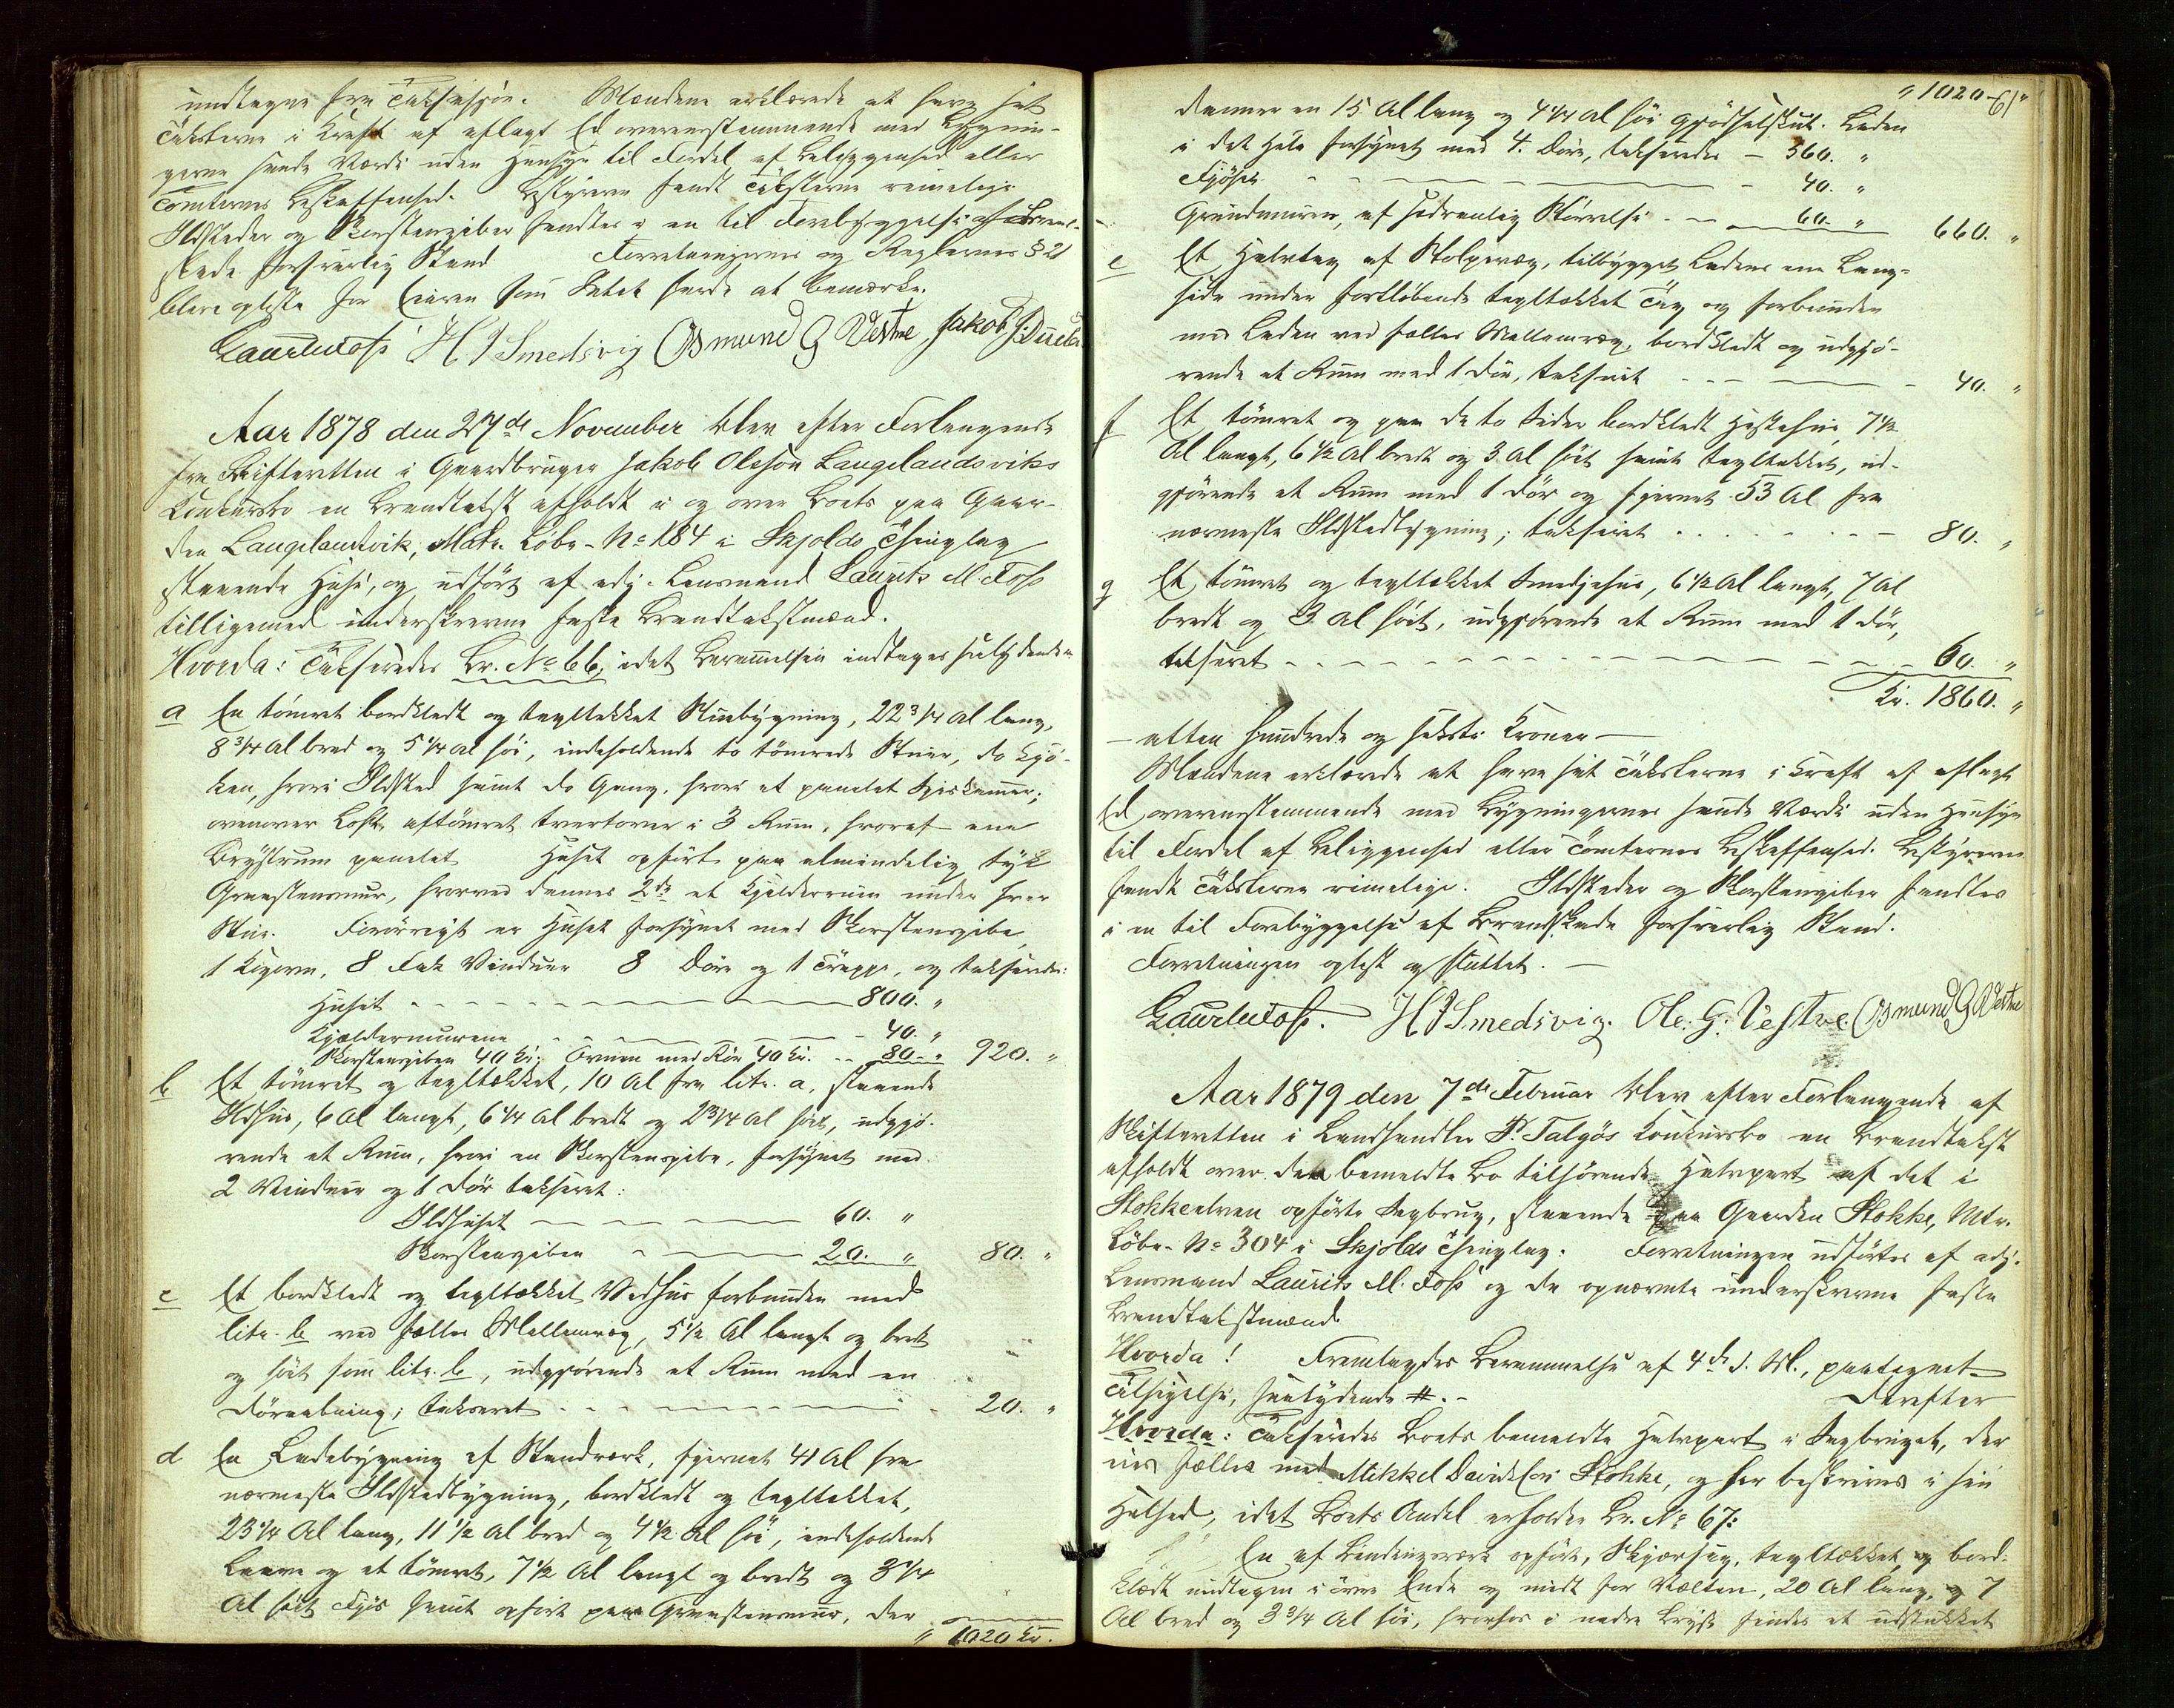 undtagne fra Taksasjon. Mændene erklærede at have sat
Taksterne i Kraft af aflagt Ed overensstemmende med Bygnin-
gerne sande Værdi uden Hensyn til Fordel af Beliggenhed eller
Tomternes Beskaffenhed. Bestyreren fandt Taksterne rimelige
Ildsteder og Skorstenspiber fandtes i en til Forebyggelse af Brand-
skade forsvarlig Stand Forretningerne og Reglernes § 21
blev oplæste for Eieren som Intet havde at bemærke.
LauritzMFoss H J Smedsvig Osmund G Vestve, Jakob J.
Aar 1878 den 27de November blev efter Forlangende
fra Skifteretten i Gaardbruger Jakob Olesøn Laugelandsviks
Konkursbo en Brandtakst afholdt i og over Boets paa Gaar-
den Laugelandsvik, Matr. Løbe-No 184 i Skjolds Thinglag
staaende Huse, og udført af adj. Lensmand Laurits M. Foss
tilligemed underskrevne faste Brandtakstmænd.
Hvorda: Takseredes Br. No 66, idet Berammelsen indtages saalydende
a En tømret bordklædt og tegltækket Stuebygning, 22 3/4 Al lang,
8 3/4 Al bred og 5 1/4 Al høi, indeholdende to tømrede Stuer, do Kjø-
ken, hvori Ildsted samt do Gang, hvori et panelet Spiskammer;
ovenover Loft, aftømret tvertover i 3 Rum, hvoraf ene
Brystrum panelet Huset opført paa almindelig tyk
Graastensmur, hvorved dannes 2de et Kjelderrum under hver
Stue. Forøvrigt er Huset forsynet med Skorstenspibe,
1 Kogovn, 8 Fak Vinduer 8 Døre og 1 Trappe, og takseredes:
Huset 800. "
Kjældermurene 40. "
Skorstenspiben 40 Kr; Ovnen med Rør 40 Kr. 80. " 920. "
b Et tømret og tegltækket, 10 Al fra litr. a, staaende
Ildhus, 6 Al langt, 6 1/4 Al bredt og 2 3/4 Al høit, udgjø-
rende et Rum, hvori en Skorstenspibe, forsynet med
2 Vinduer og 1 Dør takseret:
Ildhuset 60. "
Skorstenspiben 20. " 80. "
c Et bordklædt og tegltækket Vedhus forbunden med
litr. b ved fælles Mellemvæg, 5 1/2 Al langt og bredt
og høit som litr. b, udgjørende et Rum med en
Døraabning; takseret 20. "
d En Ladebygning af Standværk, fjernet 41 Al fra
nærmeste Ildstedbygning, bordklædt og tegltækket,
23 1/4 Al lang, 11 1/2 Al bred og 4 1/2 Al høi, indeholdende
Laave og et tømret, 7 1/2 Al langt og bredt og 3 1/4
Al høit Fjøs samt opført paa Graastensmur, der
" 1020 Kr.
" 1020 - 61 "
danner en 15 Al lang og 4 1/4 Al høi Gjødselskut. Laden
i det Hele forsynet med 4. Døre, takseredes 560. "
Fjøset 40. "
Grundmuren, af sædvanlig Størrelse 60. " 660. "
e Et Halvtag af Stolpevæg, tilbygget Ladens ene Lang-
side under fortløbende tegltækket Tag og forbunden
med Laden ved fælles Mellemvæg, bordklædt og udgjø-
rende et Rum med 1 Dør, takseret 40. "
f Et tømret og paa de to Sider bordklædt Hestehus, 7 1/2
Al langt, 6 1/2 Al bredt og 3 Al høit samt tegltækket, ud-
gjørende et Rum med 1 Dør og fjernet 53 Al fra
nærmeste Ildstedbygning; takseret 80. "
g Et tømret og tegltækket Smedjehus, 6 1/2 Al langt, 7 Al
bredt og 3 Al høit, udgjørende et Rum med 1 Dør,
takseret 60. "
Kr. 1860. "
— atten hundrede og seksti Kroner —
Mændene erklærede at have sat Taksterne i Kraft af aflagt
Ed overensstemmende med Bygningernes sande Værdi uden Hensyn
til Fordel af Beliggenhed eller Tomternes Beskaffenhed. Bestyreren
fandt Taksterne rimelige. Ildsteder og Skorstenspiber fandtes
i en til Forebyggelse af Brandskade forsvarlig Stand.
Forretningen oplæst og sluttet. —
LauritzMFoss. H J Smedsvig. Ole. G. Vestve. Osmund G Vestve
Aar 1879 den 7de Februar blev efter Forlangende af
Skifteretten i Landhandler P. Talgøs Konkursbo en Brandtakst
afholdt over den bemeldte Bo tilhørende Halvpart af det i
Stokkeelven opførte Sagbrug, staaende paa Gaarden Stokke, Mtr.
Løbe-No 304 i Skjolds Thinglag. Forretningen udførtes af adj.
Lensmand Laurits M. Foss og de opnævnte underskrevne faste
Brandtakstmænd.
Hvorda! Fremlagdes Berammelse af 4de d. M., paategnet
Tilsigelse, saalydende #. - Derefter
Hvorda: Takseredes Boets bemeldte Halvpart i Sagbruget, der
eies fælles med Mikkel Davidsen Stokke, og her beskrives i sin
Helhed, idet Boets Andel erholder Br. No 67:
En af Bindingsværk opført, Skjærsag, tegltækket og bord-
klædt undtagen i øvre Ende og midt for Vælten, 20 Al lang, og 7
Al bred og 3 3/4 Al høi, hvorhos i nedre Bryst findes et udstukket